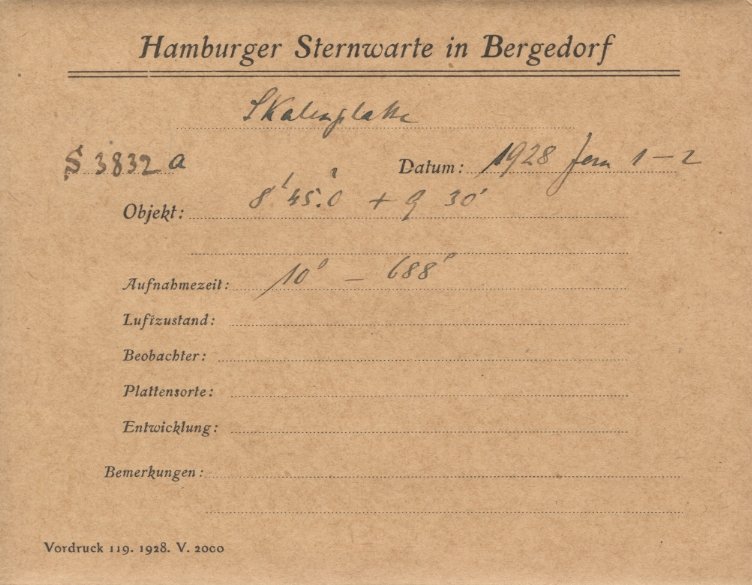 Hamburger Sternwarte in Bergedorf
Skalenplatte
S 3832 a Datum: 1928 1-2
Objekt: 8 45.0 + 9 30'
Aufnahmezeit: 10ˢ - 688ˢ
Luftzustand:
Beobachter:
Plattensorte:
Entwicklung:
Bemerkungen:
Vordruck 119. 1928. V. 2000